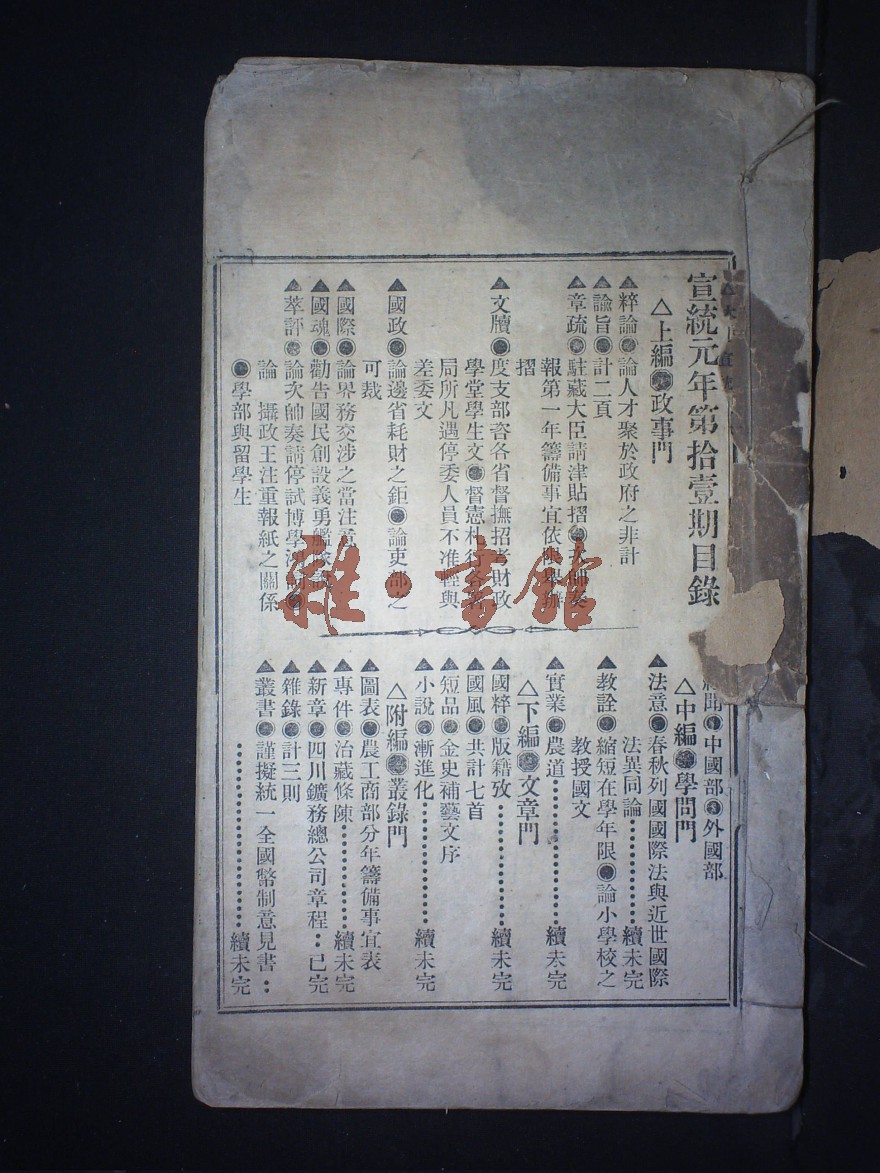 宣統元年第拾壹期目錄
△上編●政事門
▲粹論●論人才聚於政府之非計
▲諭旨●計二頁
▲章疏●駐藏大臣請津貼摺●
報第一年籌備事宜依限舉辦
摺
▲文牘●度支部咨各省督撫招考財政
學堂學生文●督憲札行各
局所凡遇停委人員不准輕與
差委文
▲國政●論邊省耗財之鉅●論吏部之
可裁
▲國際●論界務交涉之當注意
▲國魂●勸告國民創設義勇艦隊
▲萃評●論次帥奏請停試博學
論 攝政王注重報紙之關係
●學部與留學生
聞●中國部●外國部
△中編●學問門
▲法意●春秋列國國際法與近世國際
法異同論 續未完
▲教詮●縮短在學年限●論小學校之
教授國文
▲實業●農道 續未完
△下編●文章門
▲國粹●版籍攷 續未完
▲國風●共計七首
▲短品●金史補藝文序
▲小說●漸進化 續未完
△附編●叢錄門
▲圖表●農工商部分年籌備事宜表
▲專件●治藏條陳 續未完
▲新章●四川鑛務總公司章程 已完
▲雜錄●計三則
▲叢書●謹擬統一全國幣制意見書
續未完
雜·書館